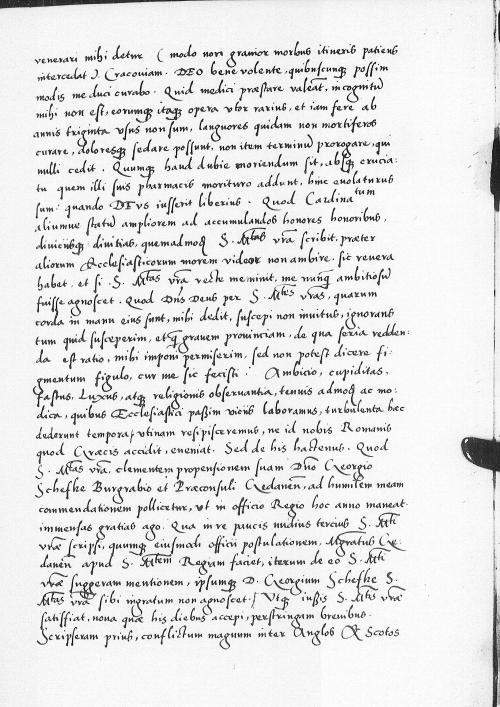 venerari mihi detur (modo non gravior morbus itineris patiens
intercedat). Cracoviam. DEO bene volente, quibuscunq3 possim
modis me duci curabo. Quid medici præstare valeāt, incognitū
mihi non est, eorumq3 itaq3 opera utor rarius, et iam fere ab
annis triginta usus non sum, languores quidam non mortiferos
curare, doloresq3 sedare possunt, non item terminū prorogare, qui
nulli cedit. Quumq3 haud dubie moriendum sit, absq3 crucia:
tu quem illi suis pharmacis morituro addunt, hinc evolaturus
sum: quando DEVS iusserit liberius. Quod Cardinatum
aliumve statū ampliorem ad accumulandos honores honoribus,
divitiisq3 divitias, quemadmodū S. Mtas vrā scribit, præter
aliorum Ecclesiasticorum morem videor non ambire. sic revera
habet, et si S. Mtas vrā recte meminit, me nunq̄ ambitiosū
fuisse agnoscet. Quod Dnūs Deus per S. Mtes vrās, quarum
corda in manu eius sunt, mihi dedit, suscepi non invitus, ignorans
tum quid susceperim, etsiq3 gravem provinciam, de qua seria redden:
da est ratio, mihi imponi permiserim, sed non potest dicere fi:
gmentum figulo, cur me sic fecisti? Ambicio, cupiditas,
fastus, Luxus, atq3 religionis observantia, tenuis admodū ac mo:
dica, quibus Ecclesiastici passim viciis laboramus, turbulenta hæc
dederunt tempora, utinam resipisceremus, ne id nobis Romanis
quod Græcis accidit, eveniat. Sed de his hactenus. Quod
S. Mtas vrā. clementem propensionem suam Dno Georgio
Schefke Burgrabio et Præconsuli Gedanen̄, ad humilem meam
commendationem pollicetur, ut in officio Regio hoc anno maneat
immensas gratias ago. Qua in re paucis nudius tercius S. Mti
vræ scripsi, quumq3 eiusmodi officii postulationem, Mgratus Ge:
danen̄ apud S. Mtem Regiam faciet, iterum de eo S. Mti
vræ suggeram mentionem, ipsumq3 D. Georgium Schefke S.
Mtas vrā sibi ingratum non agnoscet. Utq3 iussis S. Mtis vræ
satisfiat, nova quæ his diebus accepi, perstringam brevibus.
Scripseram prius, conflictum magnum inter Anglos & Scotos